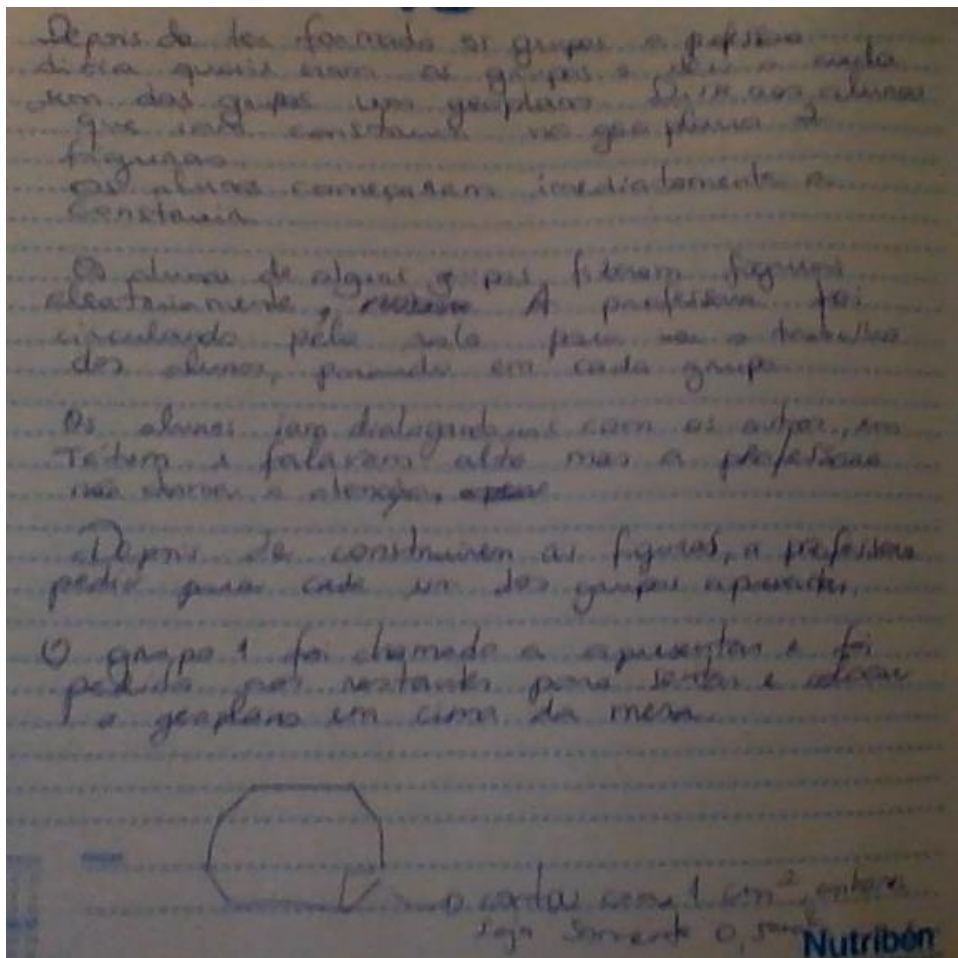 Depois de ter formado os grupos a professora
dizia quais eram os grupos e deu a cada
um dos grupos um geoplano. Disse aos alunos
que iam construir no geoplano 2
figuras
Os alunos começaram imediatamente a
construir
Os alunos de alguns grupos fizeram figuras
aleatoriamente, A professora foi
circulando pela sala para ver o trabalho
dos alunos, parando em cada grupo
Os alunos iam dialogando uns com os outros,
e falavam alto mas a professora
não chamou a atenção,
Depois de construirem as figuras, a professora
pediu para cada um dos grupos apresentar.
O grupo 1 foi chamado a apresentar e foi
pedido aos restantes para sentar e colocar
o geoplano em cima da mesa
contar como 1 cm², embora
seja somente 0,5
Nutribén